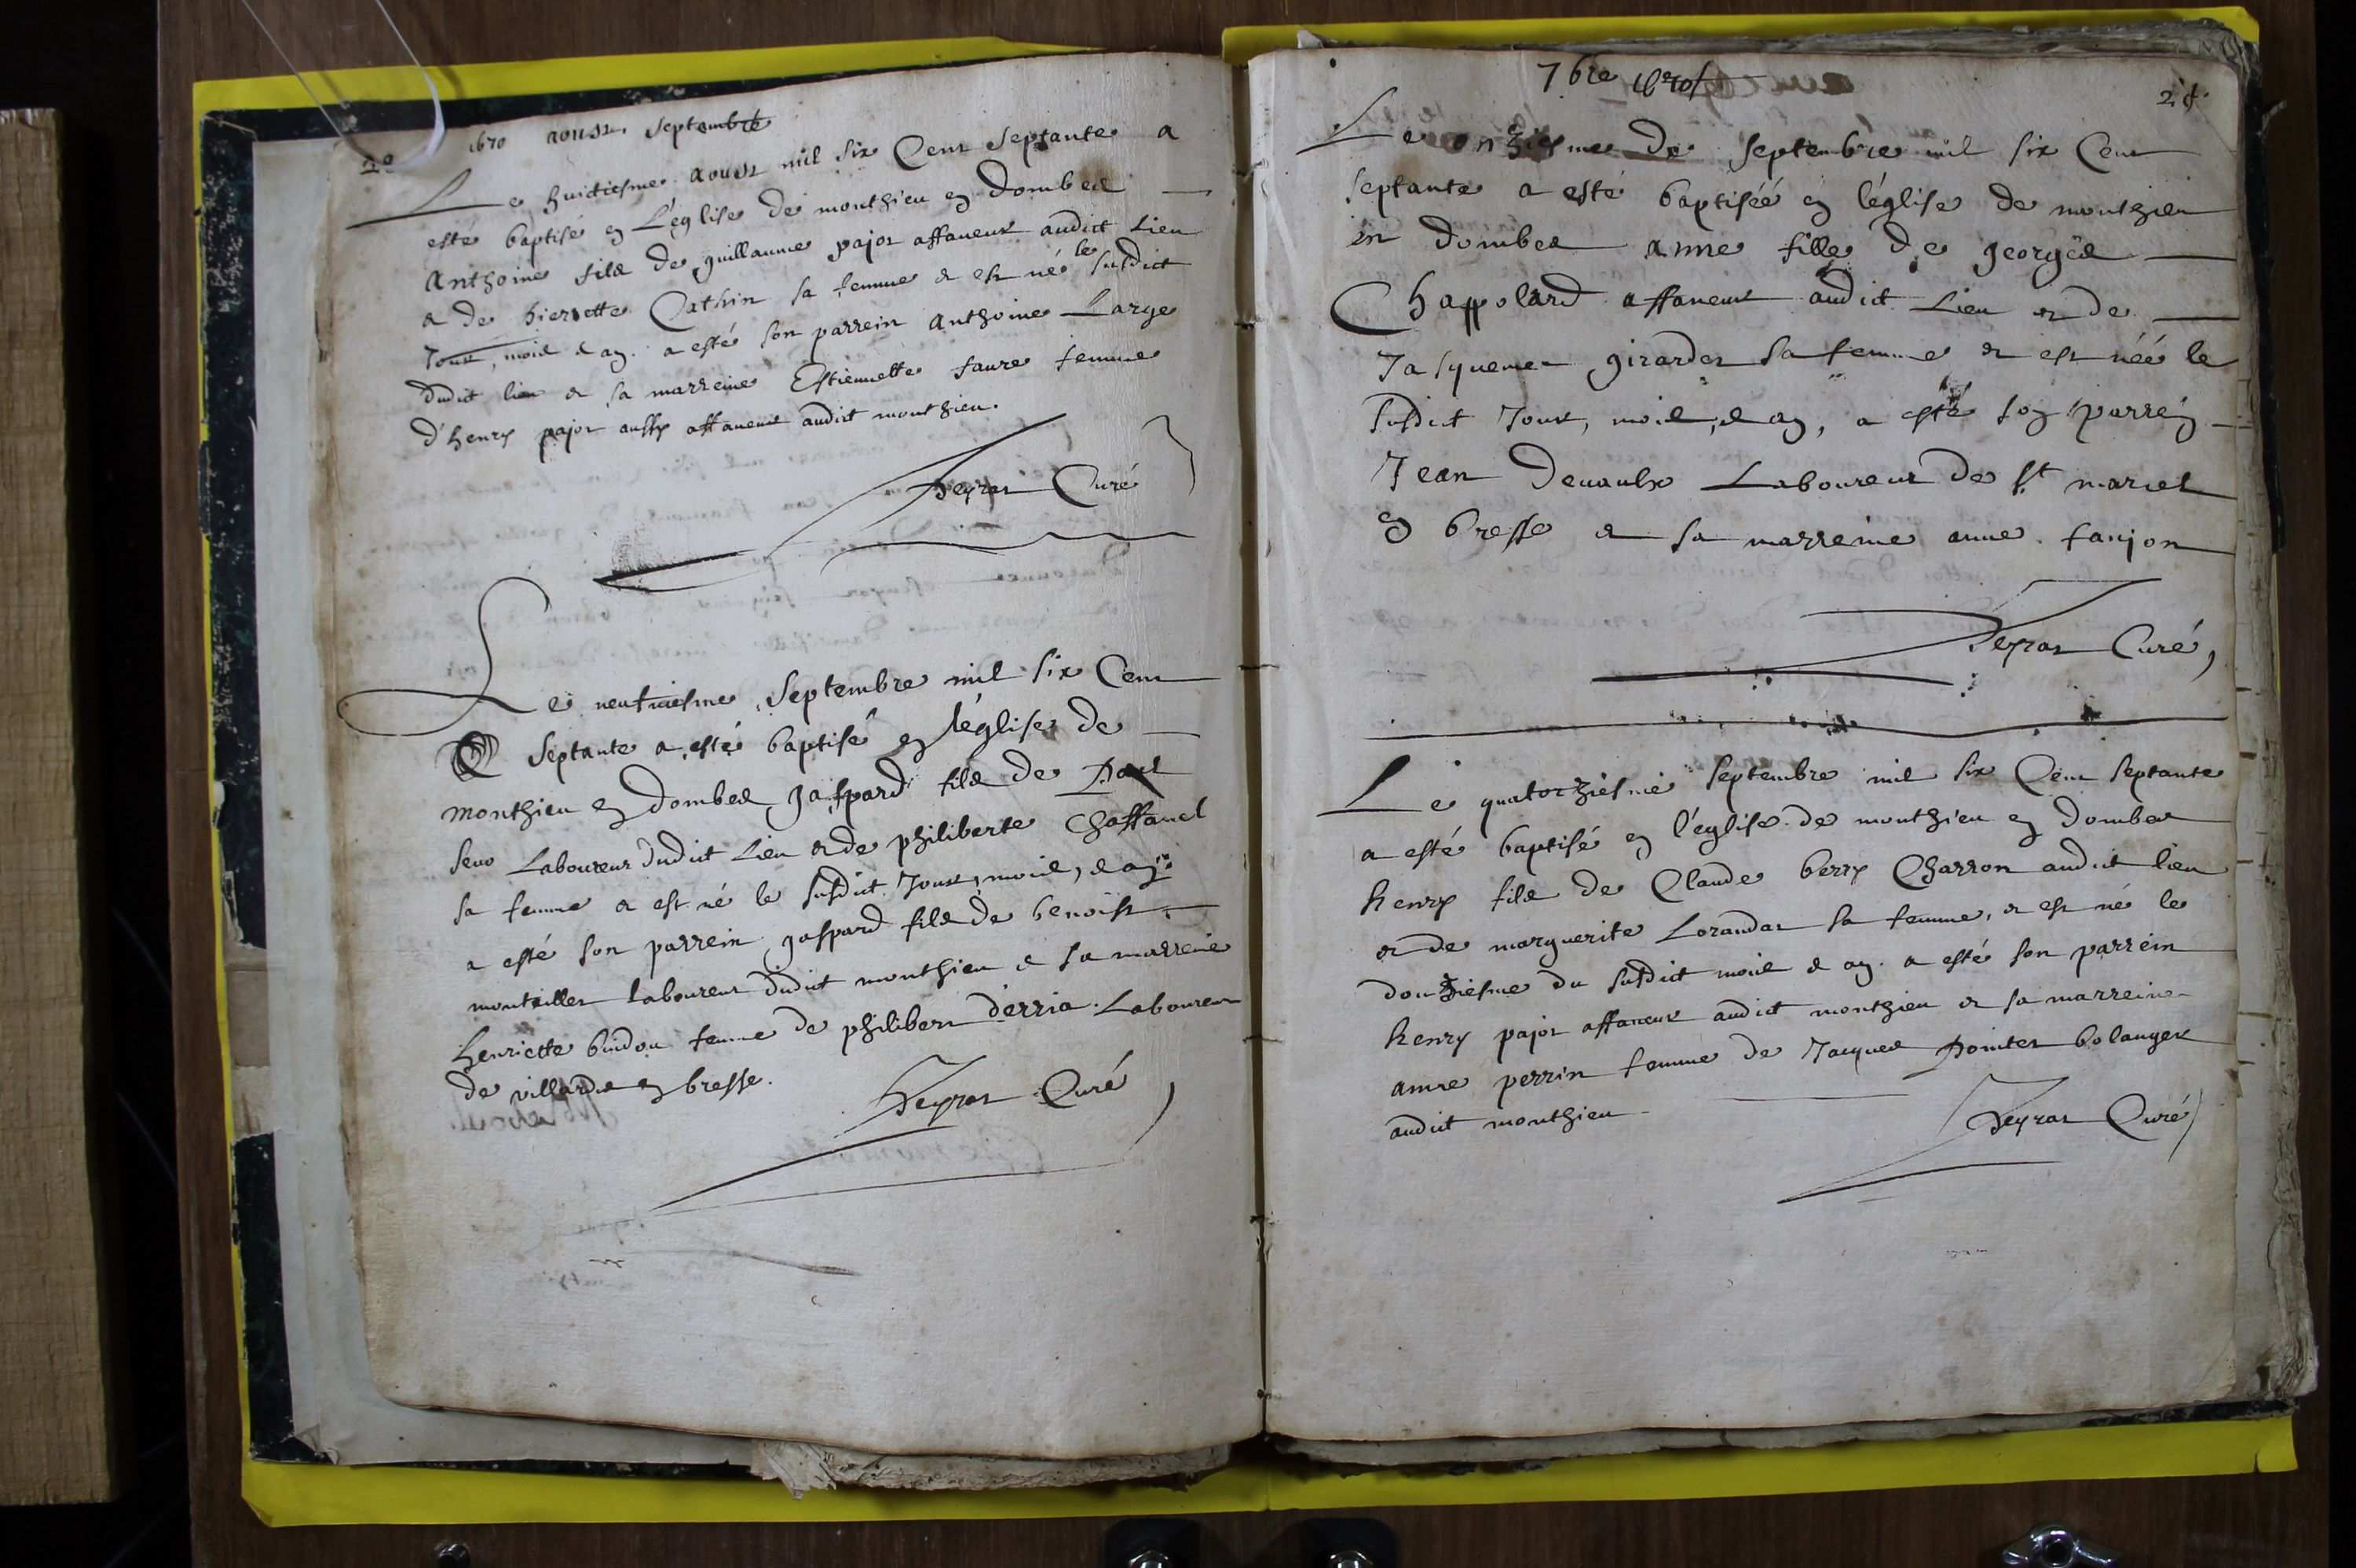 20
1670 aoust. Septembre
Le huictiesme aoust mil six Cent Septante a
esté baptisé en L'eglise de monthieu en Dombes
Anthoine fils de guillaume pajot affaneur audict Lieu
& de pierrette Cathin sa femme & est né le susdict
Jour, mois & an. a esté son parrein Anthoine Large
dudict lieu & sa marreine Estiennette faure femme
d'henry pajot aussy affaneur audict monthieu.
Peyrat Curé
Le neufviesme Septembre mil six Cent
Septante a esté baptisé en l'église de
monthieu en dombes gaspard fils de Paul
Laboureur dudict Lieu & de philiberte Chaffanel
sa femme & est né le susdict Jour, mois, & an.
a esté son parrein gaspard fils de benoist
montaillet laboureur dudict monthieu & sa marreine
henriette femme de philibert derria Laboureur
de villards en bresse.
Peyrat Curé
7bre 1670
21.
Le onziesme de septembre mil six Cent
septante a esté baptiséé en léglise de monthieu
en dombes anne fille de georges
Chappolard affaneur audict Lieu & de
Jasquemet girardet sa femme & est néé le
susdict Jour, mois, & an, a esté son parrein
Jean Devaulx Laboureur de st marcel
en bresse & sa marreine anne fanjon
Peyrat Curé,
Le quatorziesme septembre mil six Cent septante
a esté baptisé en l'église de monthieu en dombes
henry fils de Claude berry Charron audict lieu
& de marguerite Lorandat sa femme, & est né le
douziesme du susdict mois & an. a esté son parrein
henry pajot affaneur audict monthieu & sa marreine
anne perrin femme de Jacques Pointet bolanger
audict monthieu
Peyrat Curé